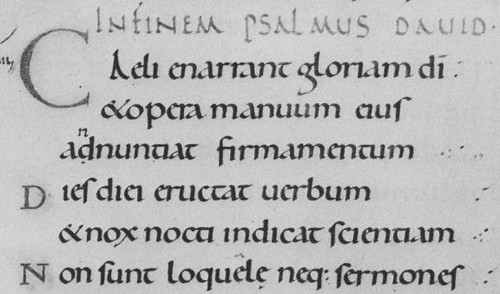 IN FINEM PSALMUS DAVID.
CAeli enarrant gloriam dī :
&opera manuum eius
adnuntiat firmamentum
Dies diei eructat uerbum
&nox nocti indicat scientiam
Non sunt loquelę neq: sermones